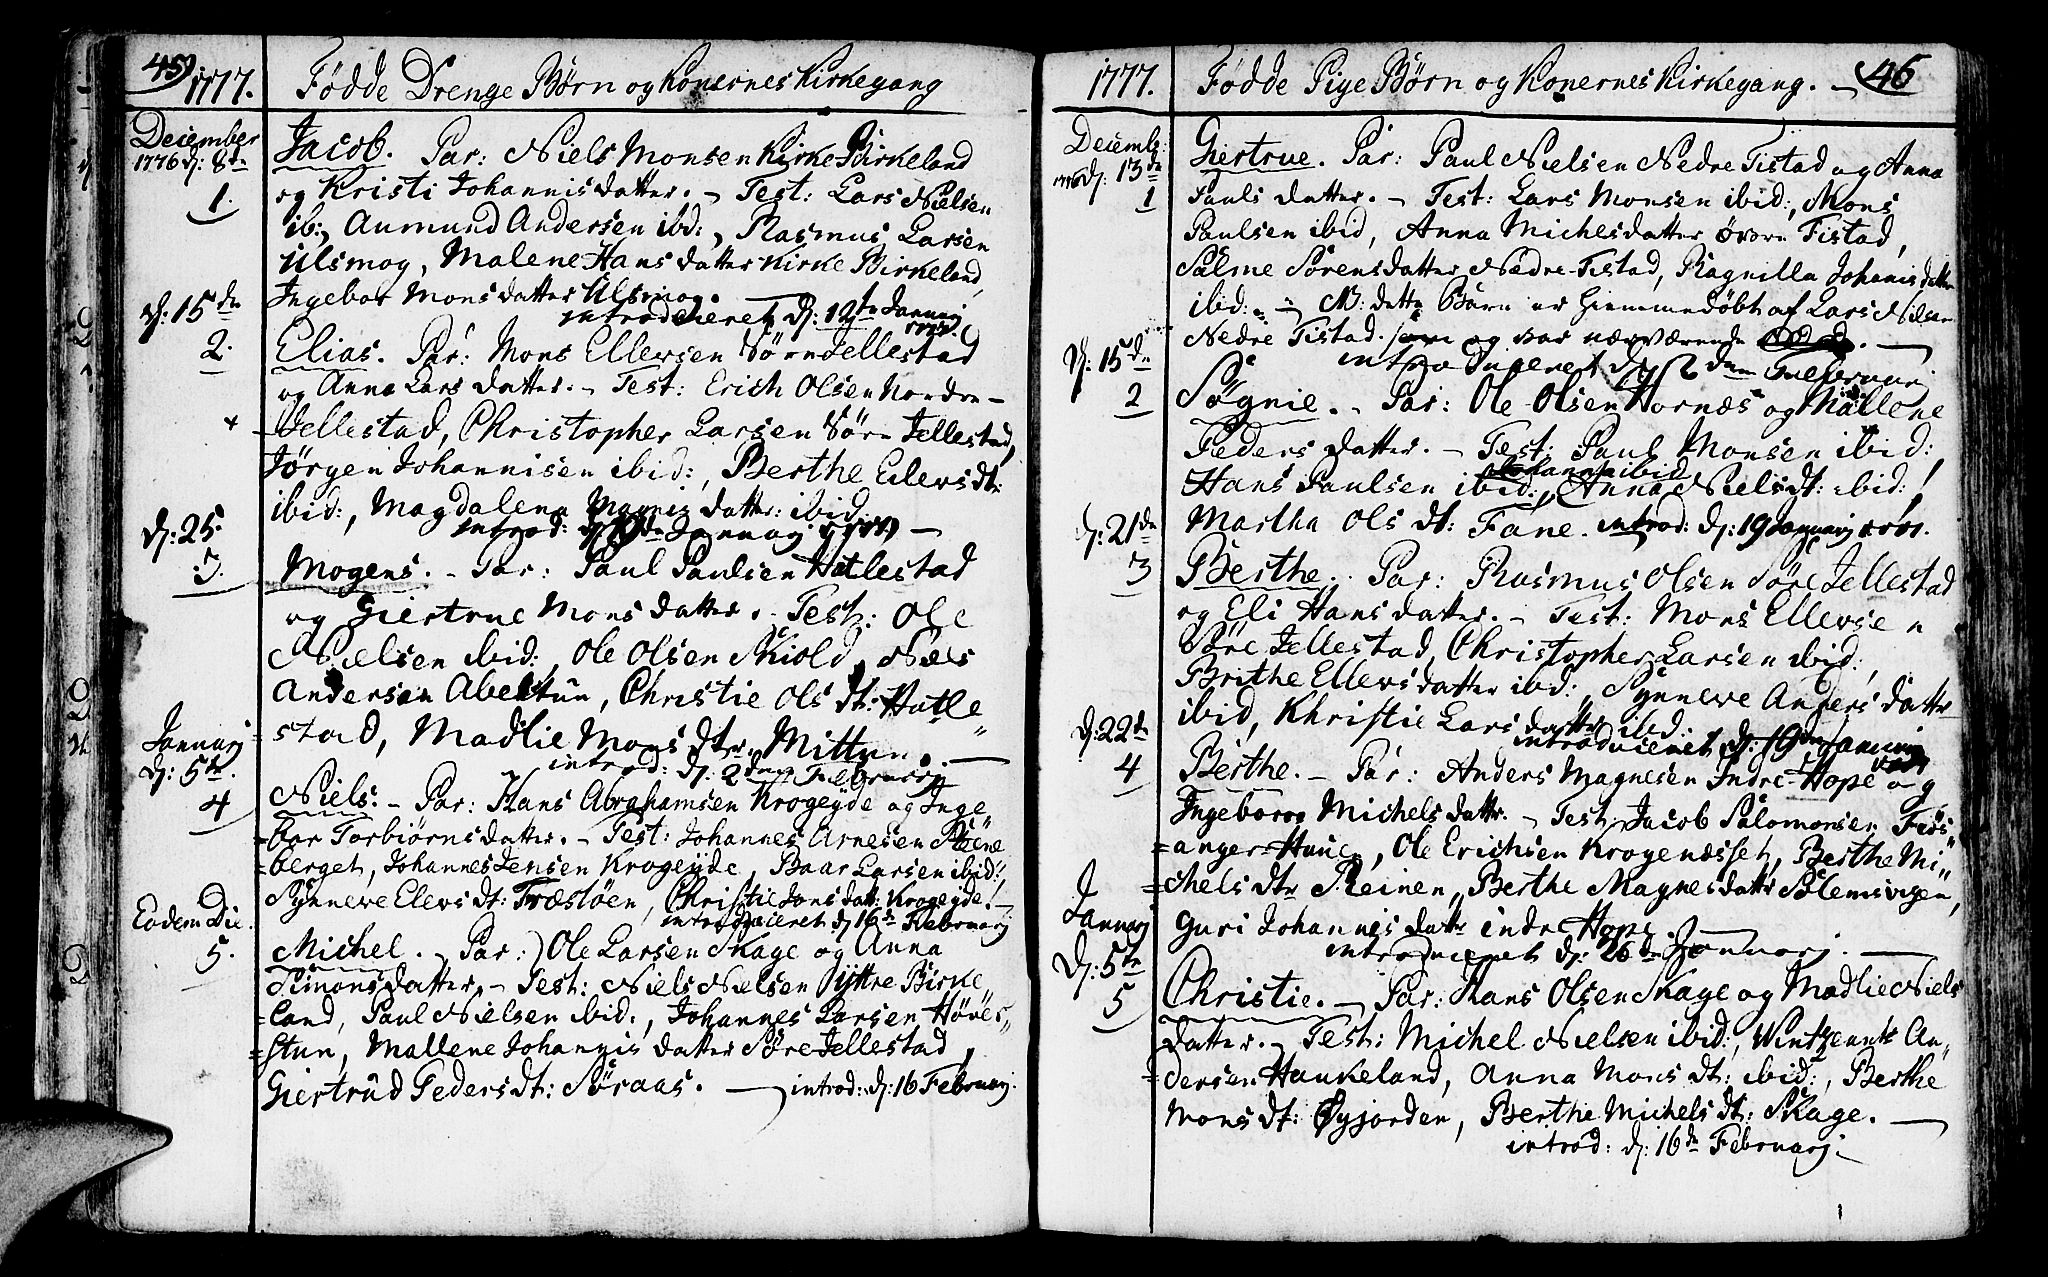 45
1777. Fødde Drenge Børn og Konernes Kirkegang
December
1776 d: 8de
1.
Jacob. Par: Niels Monsen Kirke Birkeland
og Kristi Johannis datter. – Test: Lars Nielsen
ib:, Aumund Andersen ibd:, Rasmus Larsen
Ulsmog, Malene Hans datter Kirke Birkeland,
Ingebor Mons datter Ulsmog.
introduceret d: 12te Januarj
d: 15de
2.
Elias. Par: Mons Ellersen Sørn Jellestad
og Anna Lars datter. – Test: Erich Olsen Nordre –
Jellestad, Christopher Larsen Sørn Jellestad,
Jørgen Johannisen ibid:, Berthe Eilersdt:
ibid:, Magdalena Magnis datter: ibid
introd: Januarj
d: 25.
3.
Mogens. – Par: Paul Paulsen Hatlestad
og Giertrue Mons datter. – Test: Ole
Nielsen ibid:, Ole Olsen Skiold, Niels
Andersen Abelstun, Christie Ols dt: Hatle
stad, Madlie Mons dtr. Mittun. –
introd: d: 2den Februarj
Januarj
d: 5te.
4
Niels. – Par: Hans Abrahamsen Krogeyde og Inge
bor Torbiørnsdatter. – Test: Johannes Arnesen Steene
berget, Johannes Jensen Krogeyde, Baar Larsen ibid:,
Synneve Elers dt: Træstøen, Christie Jons datt: Krogeyde. –
introduceret d: 16de Februarj
Eodem Die.
5.
Michel. – Par: Ole Larsen Skage og Anna
Simonsdatter. – Test: Niels Nielsen Yttre Birke
land, Paul Nielsen ibid:, Johannes Larsen Høves
stun, Mallene Johannis datter Søre Jellestad,
Giertrud Peders dt: Søraas. – introd: d: 16 Februarj.
1777. Fødde Pige Børn og Konernes Kirkegang. –
46
Decemb:
1776 d: 13de
1
Giertrue. Par: Paul Nielsen Nedre Tistad og Anna
Pauls datter. – Test: Lars Monsen ibid:, Mons
Paulsen ibid, Anna Michelsdatter øvre Tistad,
Salme Sørensdatter Nedre Tistad, Ragnilla Johannisdatter
ibid: – NB: dette Barn er hiemmedøbt af Lars Nielsen
Nedre Tistad. som og var nærværende
d: 15de
2
Søgnie. – Par: Ole Olsen Hornæs og Mallene
Peders datter. – Test: Paul Monsen ibid:,
Hans Paulsen ibid:, Anna Nielsdt: ibid:,
Martha Ols dt: Fane. introd: d: 19 Januarj
d: 21de
3
Berthe. Par: Rasmus Olsen Søre Jellestad
og Eli Hans datter. – Test: Mons Ellersen
Søre Jellestad, Christopher Larsen ibid:,
Brithe Ellersdatter ibd:, Synneve Anders datter
ibid, Khristie Lars datter ibd:
introduceret d: 19de Januarj
d: 22de
4
Berthe. – Par: Anders Magnesen Indre Hope og
Ingeborg Michels datt. – Test: Jacob Salomonsen Fiøs
anger Hauen, Ole Erichsen Krogenæsset, Berthe Mi
chels dtr Steinen, Berthe Magnesdatt Bolemsvigen,
Guri Johannis datt indre Hope.
introduceret d: 26de Januarj. –
J
Januarj
d: 5te
5
Christie. – Par: Hans Olsen Skage og Madlie Niels
datter. – Test: Michel Nielsen ibid:, Wintzents An
dersen Haukeland, Anna Mons dt: ibid:, Berthe
Mons dt: Øyjorden, Berthe Michels dt: Skage. –
introd: d: 16de Februarj. –